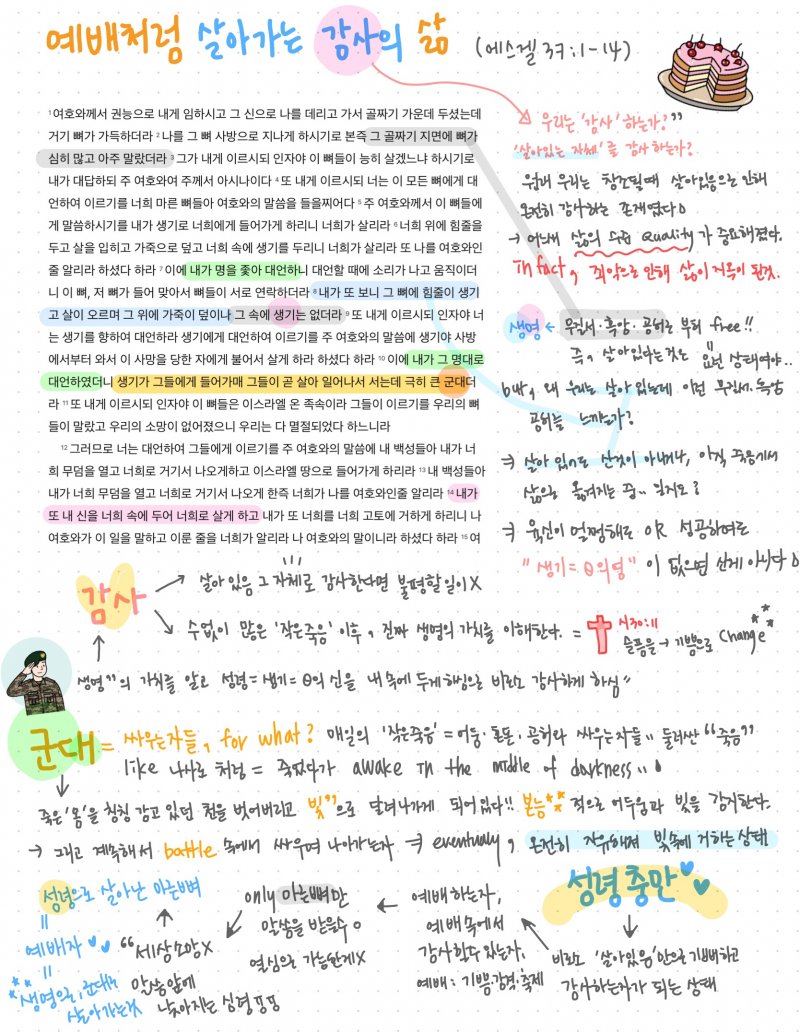 예배처럼 살아가는 감사의 삶 (에스겔 37:1-14)
1 여호와께서 권능으로 내게 임하시고 그 신으로 나를 데리고 가서 골짜기 가운데 두셨는데
거기 뼈가 가득하더라 2 나를 그 뼈 사방으로 지나게 하시기로 본즉 그 골짜기 지면에 뼈가
심히 많고 아주 말랐더라 3 그가 내게 이르시되 인자야 이 뼈들이 능히 살겠느냐 하시기로
내가 대답하되 주 여호와여 주께서 아시나이다 4 또 내게 이르시되 너는 이 모든 뼈에게 대
언하여 이르기를 너희 마른 뼈들아 여호와의 말씀을 들을찌어다 5 주 여호와께서 이 뼈들에
게 말씀하시기를 내가 생기로 너희에게 들어가게 하리니 너희가 살리라 6 너희 위에 힘줄을
두고 살을 입히고 가죽으로 덮고 너희 속에 생기를 두리니 너희가 살리라 또 나를 여호와인
줄 알리라 하셨다 하라 7 이에 내가 명을 좇아 대언하니 대언할 때에 소리가 나고 움직이더
니 이 뼈, 저 뼈가 들어 맞아서 뼈들이 서로 연락하더라 8 내가 또 보니 그 뼈에 힘줄이 생기
고 살이 오르며 그 위에 가죽이 덮이나 그 속에 생기는 없더라 9 또 내게 이르시되 인자야 너
는 생기를 향하여 대언하라 생기에게 대언하여 이르기를 주 여호와의 말씀에 생기야 사방
에서부터 와서 이 사망을 당한 자에게 불어서 살게 하라 하셨다 하라 10 이에 내가 그 명대로
대언하였더니 생기가 그들에게 들어가매 그들이 곧 살아 일어나서 서는데 극히 큰 군대더
라 11 또 내게 이르시되 인자야 이 뼈들은 이스라엘 온 족속이라 그들이 이르기를 우리의 뼈
들이 말랐고 우리의 소망이 없어졌으니 우리는 다 멸절되었다 하느니라
12 그러므로 너는 대언하여 그들에게 이르기를 주 여호와의 말씀에 내 백성들아 내가 너
희 무덤을 열고 너희로 거기서 나오게하고 이스라엘 땅으로 들어가게 하리라 13 내 백성들아
내가 너희 무덤을 열고 너희로 거기서 나오게 한즉 너희가 나를 여호와인줄 알리라 14 내가
또 내 신을 너희 속에 두어 너희로 살게 하고 내가 또 너희를 너희 고토에 거하게 하리니 나
여호와가 이 일을 말하고 이룬 줄을 너희가 알리라 나 여호와의 말이니라 하셨다 하라 15 여
우리는 '감사'하는가?"
'살아있는 자체'를 감사하는가?
원래 우리는 창조될때 살아있음으로 인해
온전히 감사하는 존재였다
→ 어느새 삶의 수준 Quality가 중요해졌다.
In fact, 죄악으로 인해 삶이 지옥이 된것.
생명 ← 무질서·흑암·공허로 부터 free!!
즉, 살아있다는것은 요런 상태여야..
but, 왜 우리는 살아있는데 이런 무질서·흑암
공허를 느끼는가?
⇒ 살아 있어도 산것이 아니거나, 아직 죽음에서
삶으로 옮겨지는 중.. 일지도?
⇒ 육신이 멀쩡해도 OR 성공하여도
"생기=θ의영"이 없으면 산게 아니다
감사
→ 살아있음 그 자체로 감사한다면 불평할 일이 X
→ 수없이 많은 '작은죽음' 이후, 진짜 생명의 가치를 이해한다. =
시30:11
슬픔을→기쁨으로 Change
생명"의 가치를 알고 성령=생기=θ의 신을 내 속에 두게하심으로 비로소 감사하게 하심"
군대 = 싸우는자들, for what? 매일의 '작은죽음' = 어둠·혼돈·공허와 싸우는자들.. 둘러싼 "죽음"
like 나사로 처럼 = 죽었다가 awake in the middle of darkness..
죽은'몸'을 칭칭 감고 있던 천을 벗어버리고 빛"으로 달려나가게 되어있다!! 본능적으로 어두움과 빛을 감지한다.
→ 그리고 계속해서 battle 속에서 싸우며 나아가는자 ⇒ eventually, 온전히 자유해져 빛속에 거하는 상태
성령충만
비로소 '살아있음'만으로 기뻐하고
감사하는자가 되는 상태
예배 하는자,
예배 속에서
감사할수 있는자,
예배: 기쁨·감격·축제
only 마른뼈만
말씀을 받을수 o
열심으로 가능한게X
"세상소망X
말씀앞에
낮아지는 심령
성령으로 살아난 마른뼈
=
예배자
=
"생명으로, 군대로
살아가는것